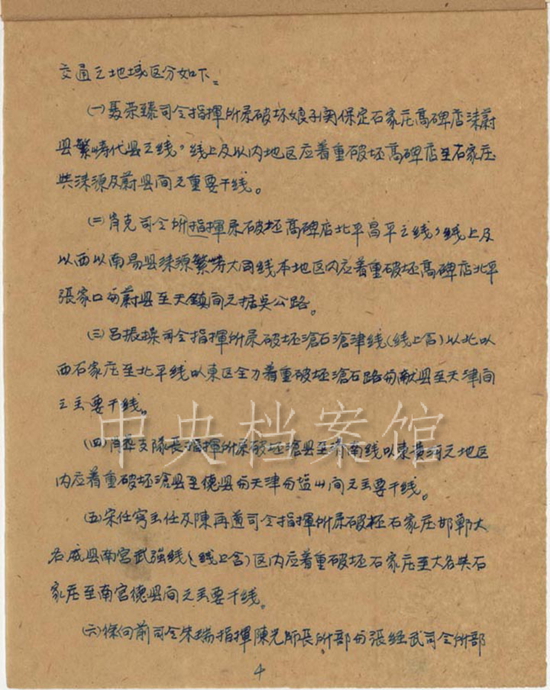 交通之地域区分如下。
(一)聂荣臻司令指揮所属破坏娘子関保定石家庄高碑店淶蔚
县繁峙代县之线。线上及以内地区应着重破坏高碑店至石家庄
与淶源及蔚县间之重要干线。
(二)肖克司令所指揮属破坏高碑店北平昌平之线,线上及
以西以南易县淶源繁峙大同线本地区内应着重破坏高碑店北平
張家口向蔚县至天鎮間之据点公路。
(三)吕振操司令指揮所属破坏滄石滄津线(线上含)以北以
西石家庄至北平线以東区全力着重破坏滄石路向献县至天津间
之主要干线。
(四)肖華支隊長指揮所属破坏滄县至济南线以東黄河之地区
内应着重破坏滄县至德县向天津向塩山间之主要干线。
(五)宋任穷主任及陳再道司令指揮所属破坏石家庄邯鄲大
名威县南宮武强线(线上含)区内应着重破坏石家庄至大名与石
家庄至南宮德县间之主要干线。
(六)徐向前司令朱瑞指揮陳光師長所部向張经武司令所部
4
中央档案馆